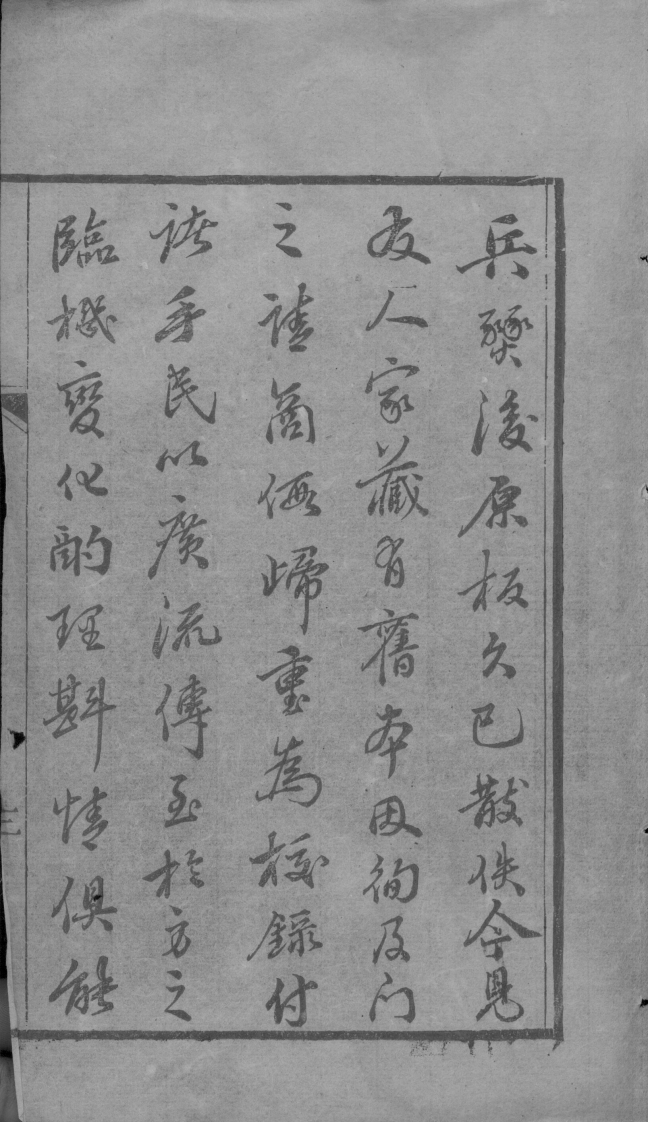 兵燹後原板久已散佚今見
友人家藏有舊本因徇及门
之請商假歸重為校錄付
諸手民以廣流傳至於方之
臨機變化酌理斟情俱能